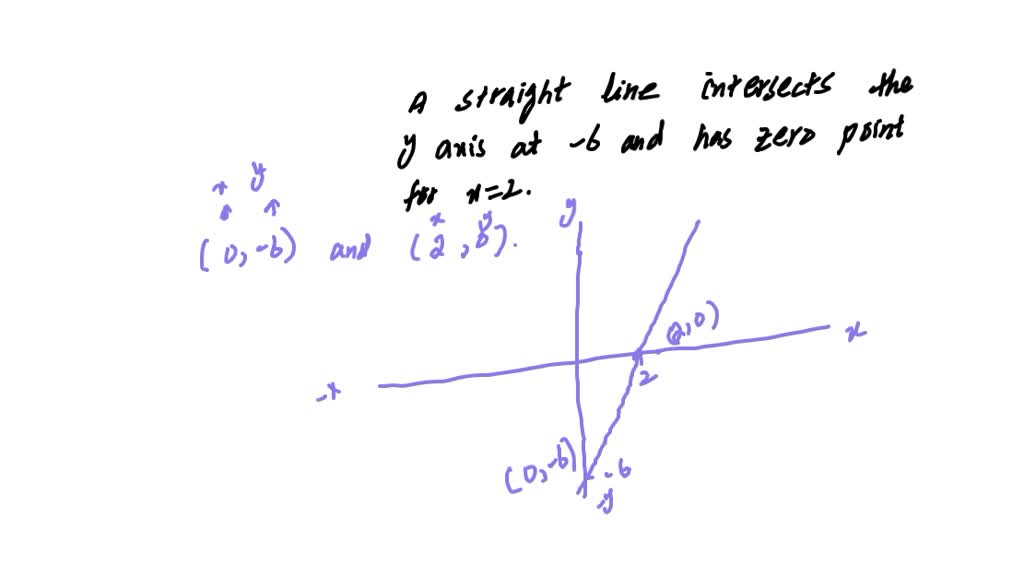 A straight line intersects the
y axis at -6 and has zero point
for x=2.
x y
(0,-6) and (2,0).
x y
y
(2,0)
x
2
-x
(0,-6)
-6
-y